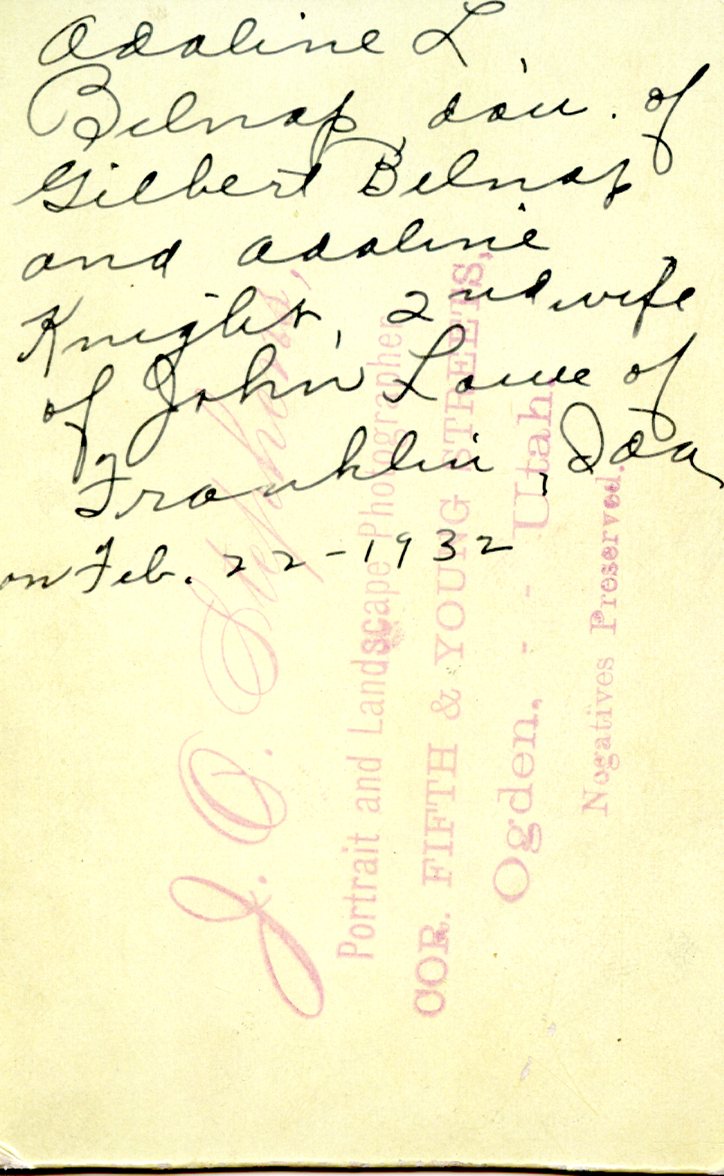 Adaline L.
Belnap, dau. of
Gilbert Belnap
and Adaline
Knight, 2nd wife
of John Lowe of
Franklin, Ida
on Feb. 22-1932
J. O. Stephens,
Portrait and Landscape Photographer
COR. FIFTH & YOUNG STREETS,
Ogden, - - Utah.
Negatives Preserved.